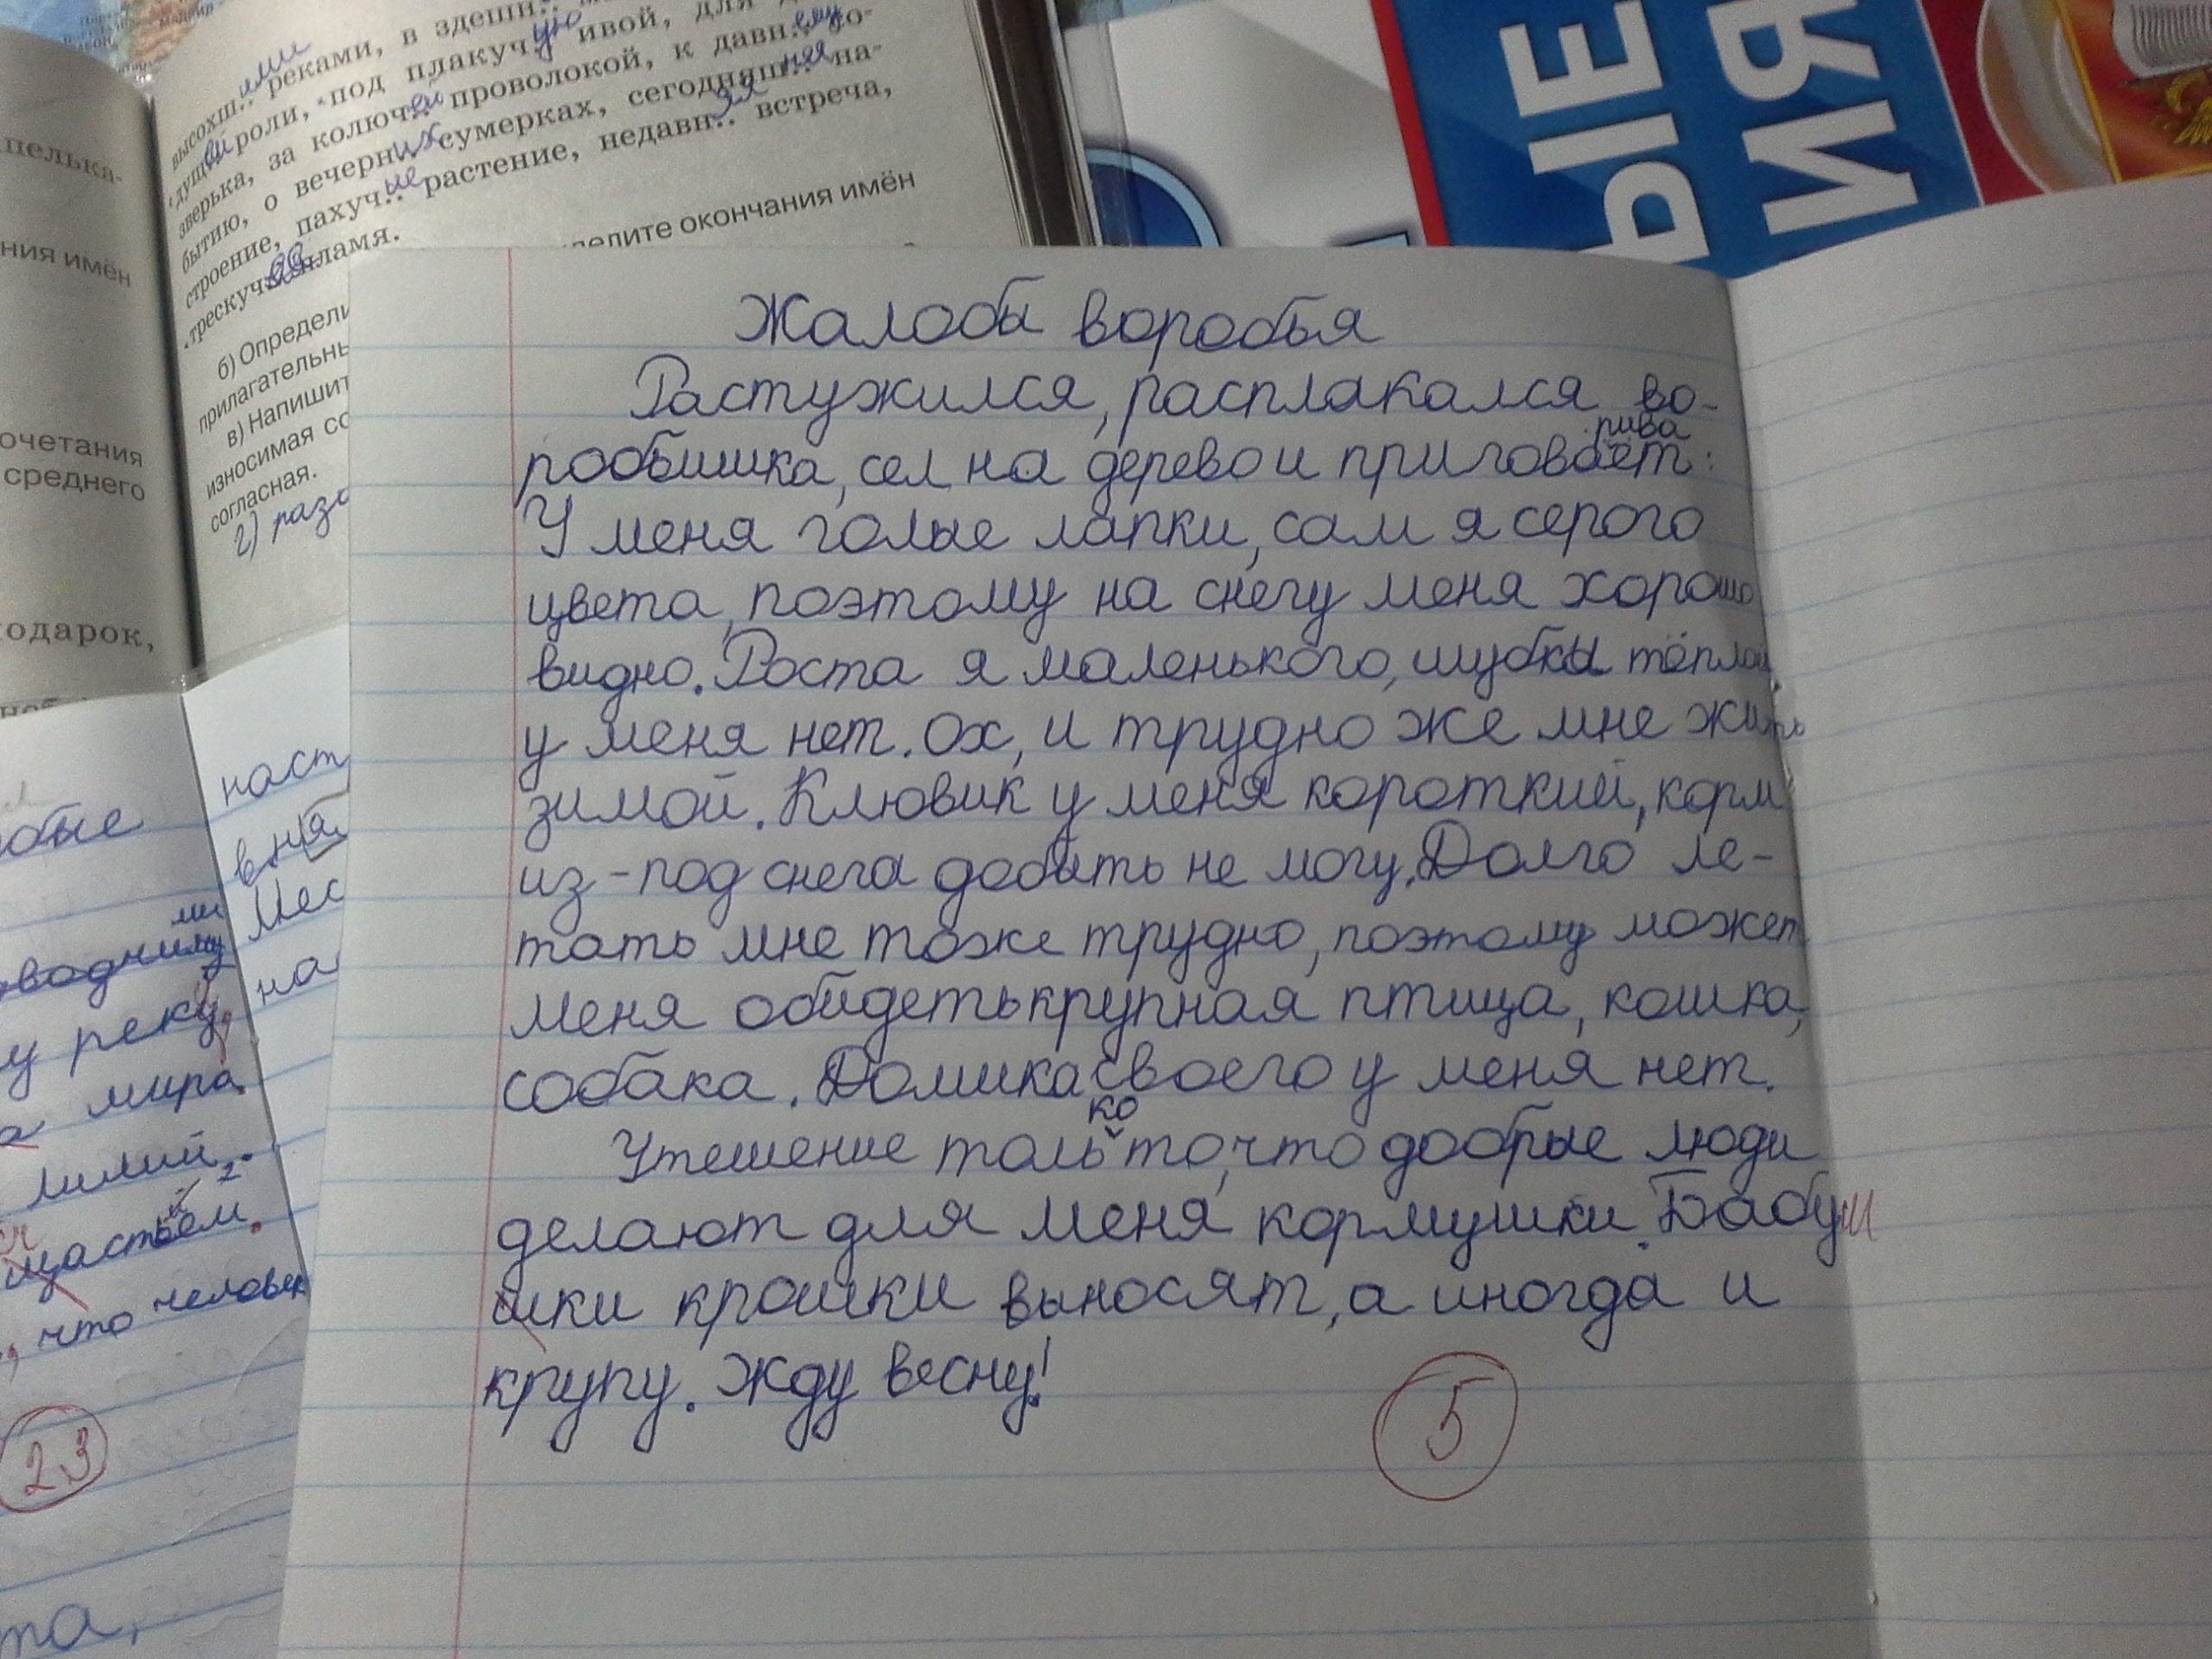 высохш.. реками, в здешн..
ими
дущ ей роли, под плакуч.. ивой, для
ую
зверька, за колюч ей проволокой, к давн..
ему
бытию, о вечерн их сумерках, сегодняш..
няя
строение, пахуч.. растение, недавн.. встреча,
ые
яя
трескуч ее пламя.
делите окончания имён
б) Определи
прилагательны
в) Напишит
износимая со
согласная.
г) разо
пелька-
ния имён
очетания
среднего
одарок,
ЫЕ
ИЯ
Жалобы воробья
Растужился, расплакался во-
робьишка, сел на дерево и приговает:
рива
У меня голые лапки, сам я серого
цвета, поэтому на снегу меня хорошо
видно. Роста я маленького, шубки тёплой
у меня нет. Ох, и трудно же мне жить
зимой. Клювик у меня короткий, корм
из-под снега добыть не могу. Долго ле-
тать мне тоже трудно, поэтому может
меня обидеть крупная птица, кошка,
собака. Домика своего у меня нет.
ко
Утешение толь то, что добрые люди
делают для меня кормушки. Бабуш
шки крошки выносят, а иногда и
крупу. Жду весну!
5
наст
вня
Мес
на
ми
водниму
у реку,
мира.
лилий.
щастьем.
, что человек
23
та,